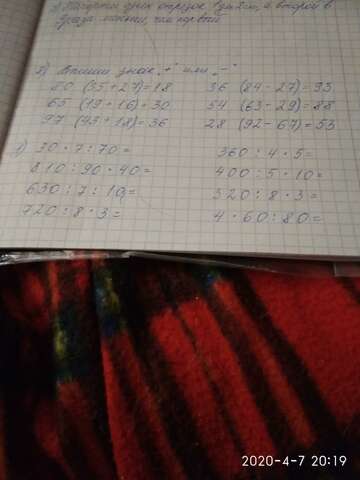 Начерти один отрезок 1дм 2см, а второй в
раза меньше, чем первый.
2) Впиши знак „+" или „-"
80 (35+27)=18 36 (84-27)=93
65 (19+16)=30 54 (63-29)=88
97 (43+18)=36 28 (92-67)=53
3) 30·7:70= 360:4·5=
810:90·40= 400:5·10=
630:7:10= 320:8·3=
720:8·3= 4·60:80=
2020-4-7 20:19